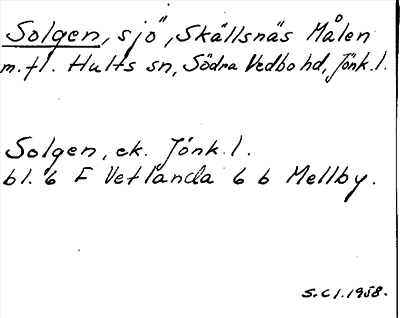 Solgen, sjö, Skällsnäs Målen
m.fl. Hults sn, Södra Vedbo hd, Jönk.l.
Solgen, ek. Jönk.l.
bl. 6 F Vetlanda 6 b Mellby.
S.Cl. 1958.